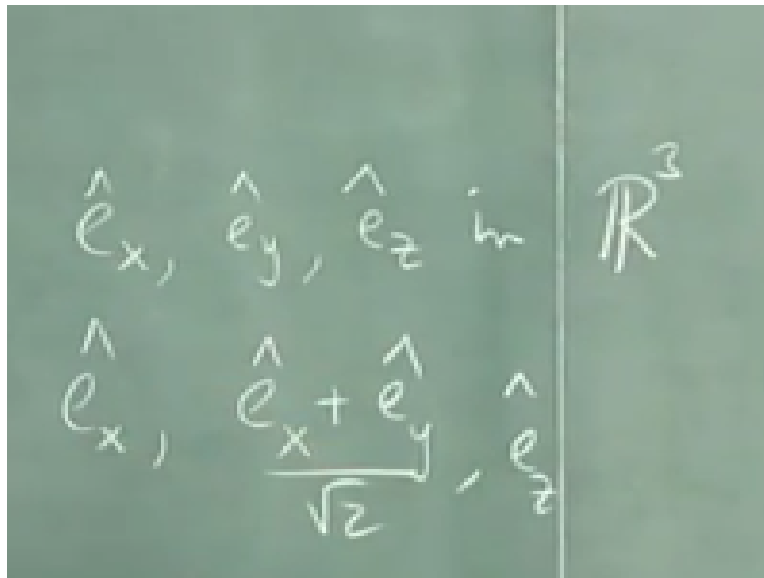 $\hat{e}_x, \hat{e}_y, \hat{e}_z$ in $\mathbb{R}^3$
$\hat{e}_x, \frac{\hat{e}_x + \hat{e}_y}{\sqrt{2}}, \hat{e}_z$